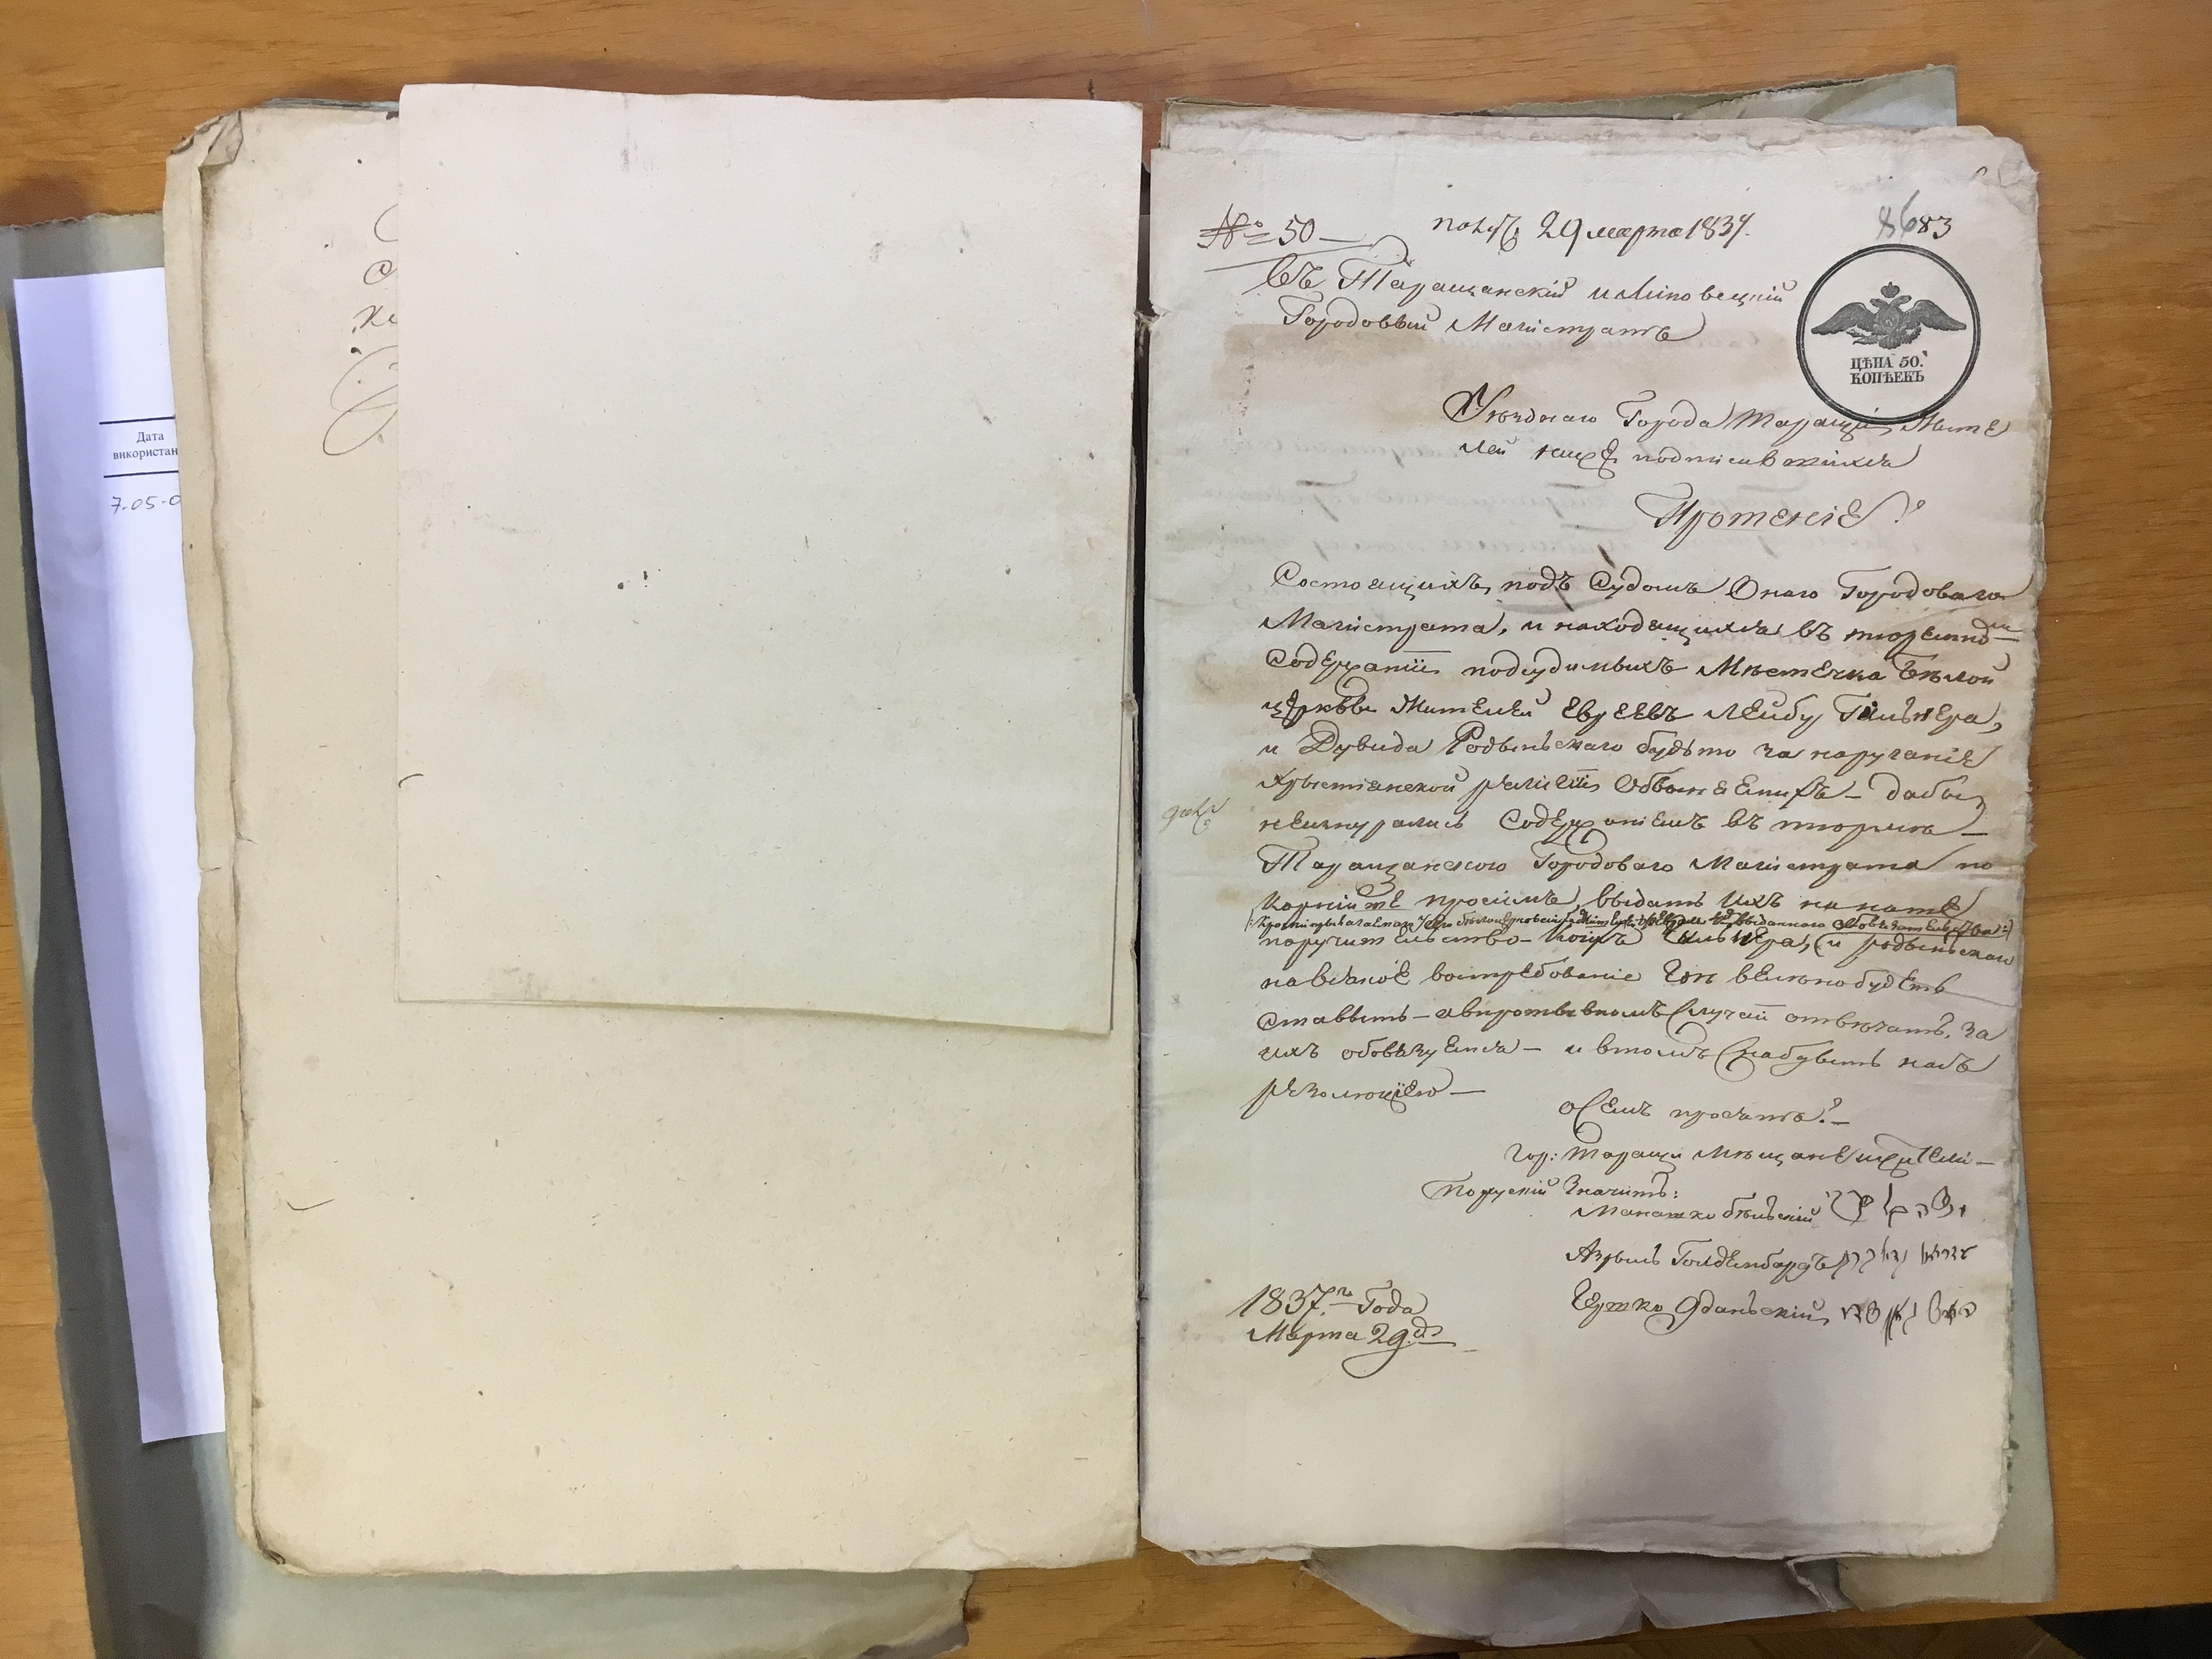 Дата
використан
7-05-0
№ 50
пол. 29 марта 1837.
8683
Въ Таращанскій и Липовецкій
Городовый Магістратъ
ЦѢНА 50.
КОПѢЕКЪ
Уѣзднаго Города Таращи Жите
лей ниже подписавшихся
Прошеніе?
Состоящихъ подъ Судомъ Онаго Городоваго
Магістрата, и находящихся въ тюремно
Содержаніи подсудимыхъ Мѣстечка Бѣлой
церквы Жителей Евреевъ Лейбу Гильнера,
и Дувида Родыньскаго будьто за наруганіе
Хрыстіанской релігіи Обвыняемихъ – дабы
неизнурались Содержаніемъ въ тюрьмѣ –
Таращанского Городоваго Магістрата по
корнійше просимъ, выдать ихъ на наше
поручительство – коихъ Гильнера, и Родыньскаго
на всякое востребованіе Гдѣ велѣно будетъ
Ставыть – а въ протывномъ Случаи отвѣчать, за
ихъ обовязуемся – и в томъ Снабдыть насъ
резолюціею –
о семъ просятъ? –
гор: Таращи Мѣщане жители –
Порускій Значитъ:
Манашко бѣльскій
Азрыль Голденбардъ
Гершко Зданьскій
1837. Года
Марта 29 д